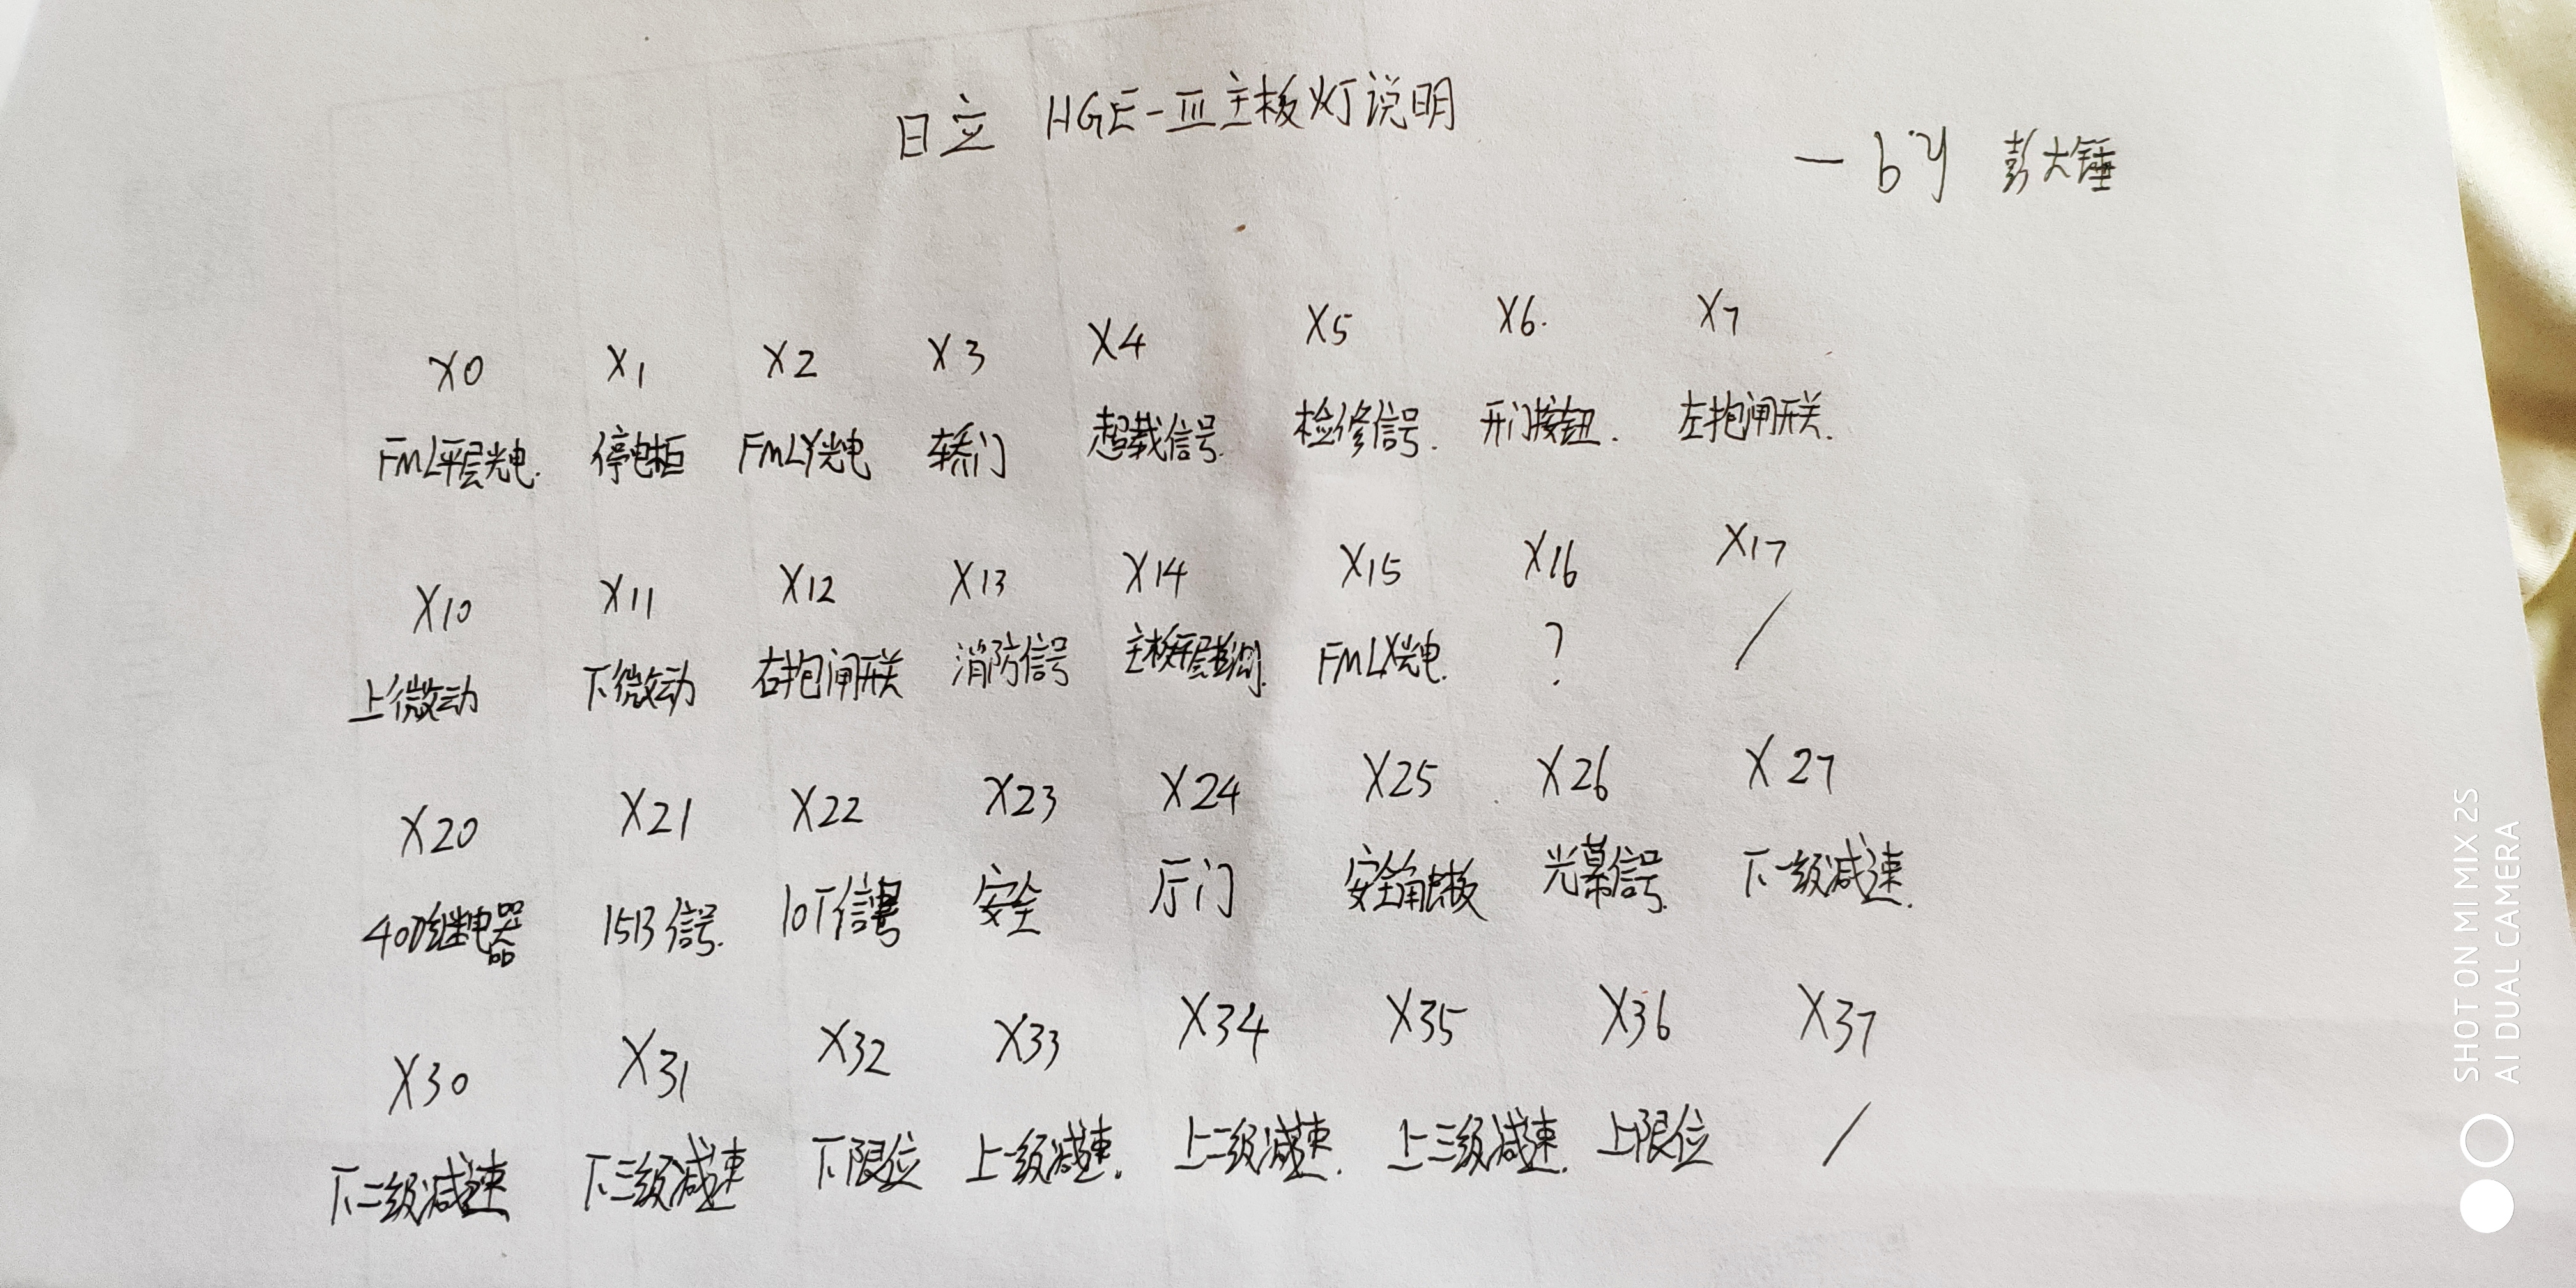 日立 HGE-III主板灯说明
—by 彭大锤
X0 X1 X2 X3 X4 X5 X6. X7
FML平层光电. 停电柜 FMLY光电 轿门 超载信号. 检修信号. 开门按钮. 左抱闸开关.
X10 X11 X12 X13 X14 X15 X16 X17
上微动 下微动 右抱闸开关 消防信号 主板平层 FMLX光电. ? /
X20 X21 X22 X23 X24 X25 X26 X27
40D继电器 15B信号. 10T信号 安全 厅门 安全触板 光幕信号. 下一级减速.
X30 X31 X32 X33 X34 X35 X36 X37
下二级减速 下三级减速 下限位 上一级减速. 上二级减速. 上三级减速. 上限位 /
SHOT ON MI MIX 2S
AI DUAL CAMERA